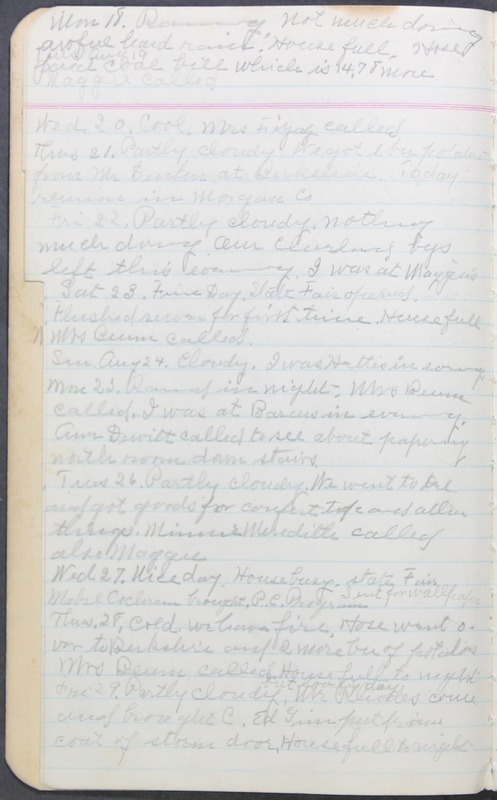 Mon 18. Rainy Not much doing
awful hard rain. House full. Hose
Tues Aug 19
paid coal bill which is 14,78 more
Maggie called
Wed 20. Cool. Mrs called
Thus 21. Partly cloudy. We got 1 bu potatoes
from Mr at Berkshire. Today
reunion in Morgan Co
Fri 22. Partly cloudy. nothing
much doing. Our Cleveland bys
left this evening. I was at Maggie's
Sat 23. Fine Day. State Fair opened.
Flushed for first time. House full
Mrs Beum called.
Sun Aug 24. Cloudy. I was Hatties in evening
Mon 25. Rained in night. Mrs Beum
called. I was at Barcus in evening.
Ann Dewitt called to see about papering
north room down stairs
Tues 26. Partly cloudy. We went to Del
and got goods for comfort top and other
things. Minnie Meredith called
also Maggie
Wed 27. Nice day. House busy. State Fair
Sent for wallpaper
Mabel Cochran brought P.C. Program
Thus. 28. Cold we have fire. Hose went o-
ver to Berkshire and 2 more bu of potatoes
Mrs Beum called. House full to night
Fri 29. Partly cloudy. Mr Rhodes come
and brought C. Ed Grim put
coat of storm door. House full to night